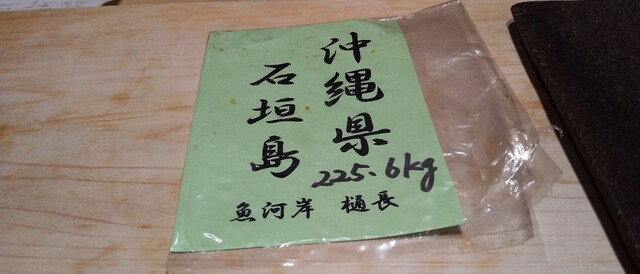 沖縄県
石垣島
225.6kg
魚河岸 樋長